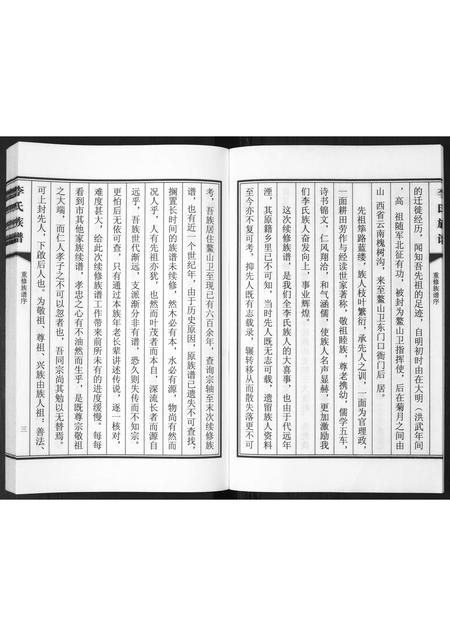 李氏族谱
重修族谱序
的迁徙经历，闻知吾先祖的足迹，自明初时由在大明（洪武年间
，高 祖随军北征有功，被封为鳌山卫指挥使，后在菊月之间由
山 西省云南槐树沟，来至鳌山卫东门口衙门后居。
先祖筚路蓝缕，族人枝叶繁衍，承先人之训，一面为官理政，
一面耕田劳作与经读世家著称，敬祖睦族，尊老携幼，儒学五车，
诗书锦文，仁风翔洽，和气涵儒，使族人名声显赫，更加激励我
们李氏族人奋发向上，事业辉煌。
这次续修族谱，是我们全李氏族人的大喜事，也由于代远年
湮，其原籍乡里已不可知，当时先人既无志可载，遗留族人资料
至今亦不复可考，抑先人既有志载录，辗转移从而散失落更不可
考，吾族居住鳌山卫至现已有六百余年，查询宗轴至末次续修族
谱，也有近一个世纪年，由于历史原因，原族谱已遗失不可查找，
搁置长时间的族谱未续修，然木必有本，水必有源，物尚有然而
况人乎，人有先祖亦犹，也然而叶茂者而本自，深流长者而源自
远乎，吾族世代渐远，支派渐分非有谱，恐久则失传而不知宗。
更怕后无依可查，只有通过本族年老长辈讲述传说，逐一核对，
难度甚大，给此次续修族谱工作带来前所未有的进度缓慢。每每
看到市其他家族续谱，孝忠之心有不油然而生乎，是以既尊宗敬祖
之大端，而仁人孝子之不可以忽者也，吾同宗尚其勉以无替焉。
可上封先人，下啟后人也。为敬祖、尊祖、兴族由族人祖：善法、
李氏族谱
重修族谱序
三